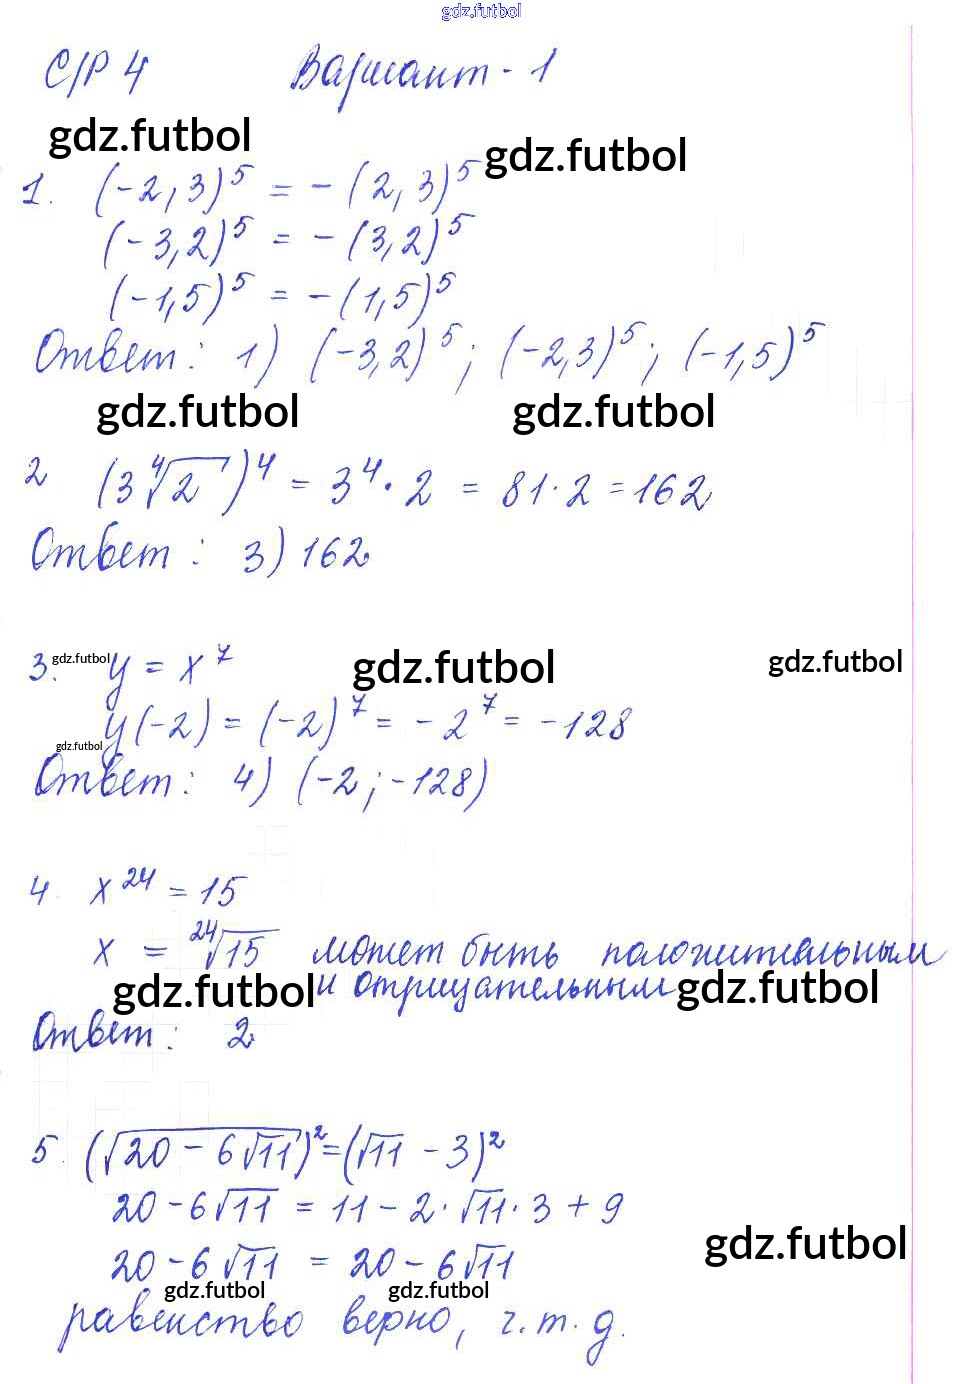 gdz.futbol
С/Р 4 Вариант - 1
gdz.futbol
gdz.futbol
1. (-2,3)⁵ = -(2,3)⁵
(-3,2)⁵ = -(3,2)⁵
(-1,5)⁵ = -(1,5)⁵
Ответ: 1) (-3,2)⁵; (-2,3)⁵; (-1,5)⁵
gdz.futbol gdz.futbol
2 (3∜2)⁴ = 3⁴·2 = 81·2 = 162
Ответ: 3) 162
3. gdz.futbol y = x⁷ gdz.futbol gdz.futbol
y(-2) = (-2)⁷ = -2⁷ = -128
gdz.futbol
Ответ: 4) (-2; -128)
4. x²⁴ = 15
x = ²⁴√15 может быть положительным
gdz.futbol и отрицательным gdz.futbol
Ответ: 2
5. (√(20 - 6√11))² = (√11 - 3)²
20 - 6√11 = 11 - 2·√11·3 + 9
gdz.futbol
20 - 6√11 = 20 - 6√11
gdz.futbol gdz.futbol
равенство верно, ч.т.д.